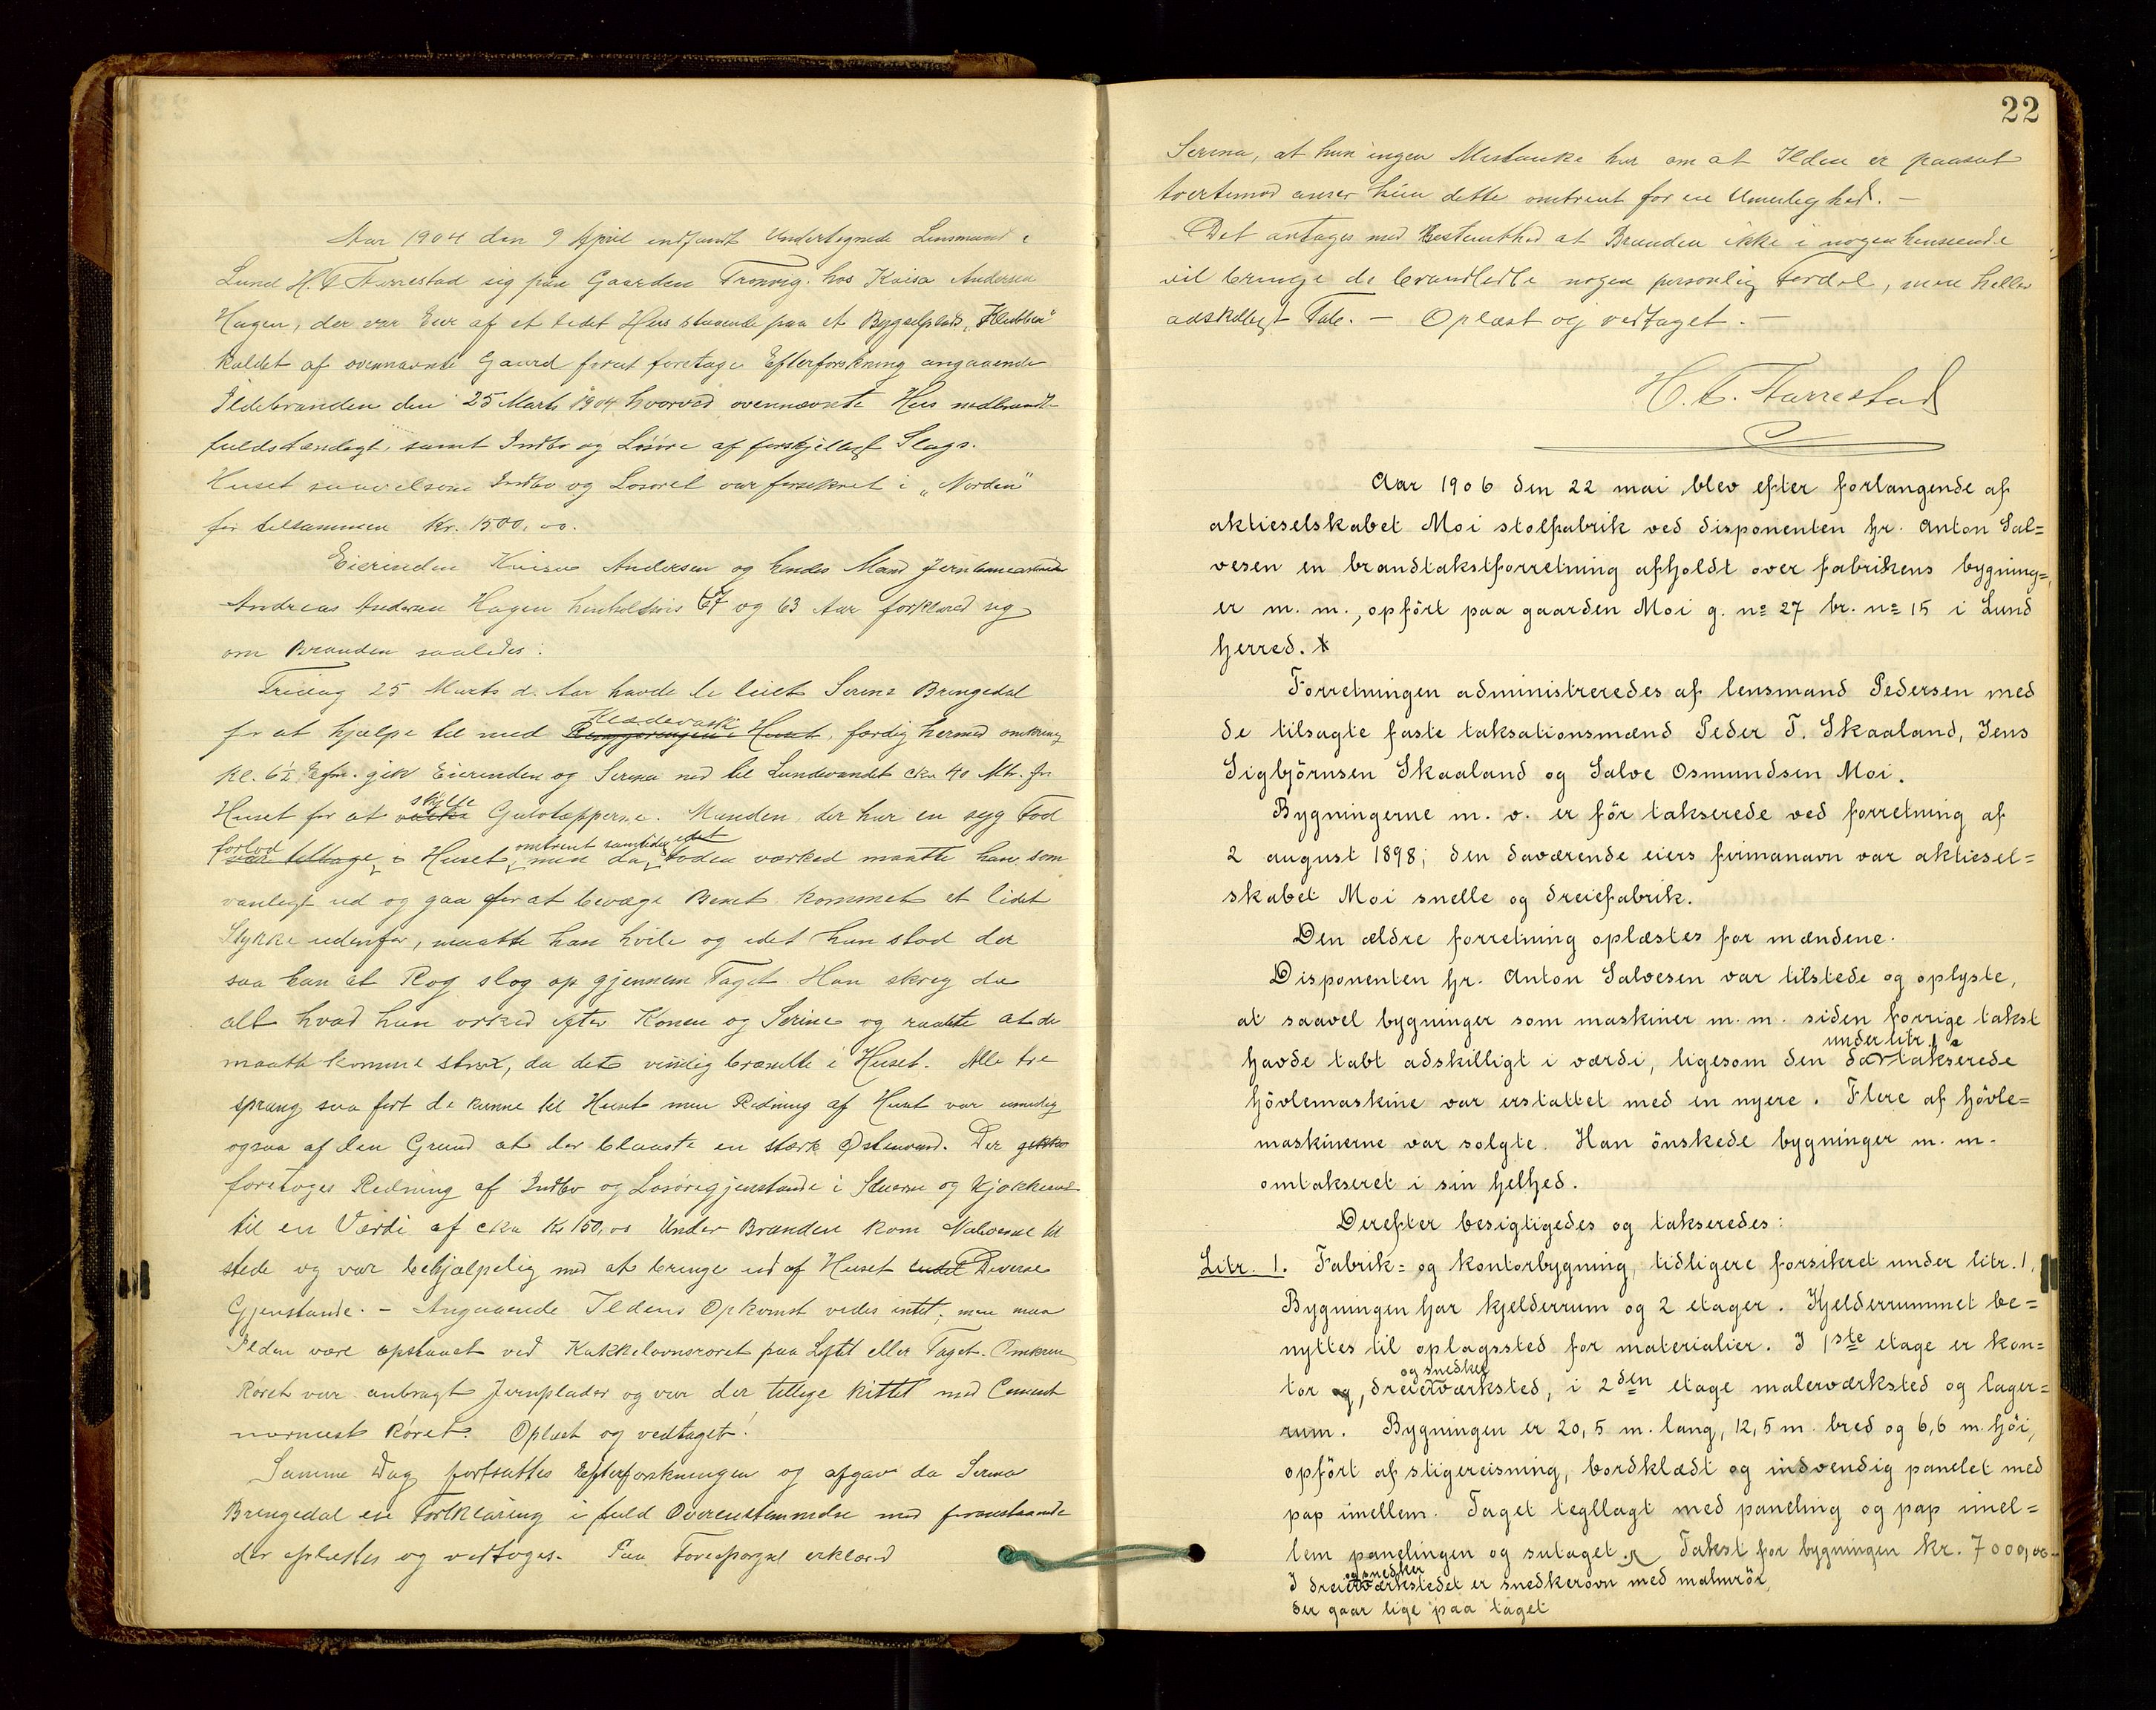 Aar 1904 den 9 April indfandt Undertegnede Lensmand i
Lund H. C. Tarrestad sig paa Gaarden Tronvig hos Kaisa Andersen
Hagen, der var Eier af et lidet Hus staaende paa et Bygselplads "Klubben"
kaldet af ovennævnte Gaard forat foretage Efterforskning angaaende
Ildebranden den 25 Marts 1904 hvorved ovennævnte Hus nedbrændte
fuldstændigt, samt Indbo og Løsøre af forskjelligt Slags.
Huset saavelsom Indbo og Løsøret var forsikret i "Norden"
for tilsammen Kr. 1500,00.
Eierinden Kaisa Andersen og hendes Mand
Andreas Andersen Hagen henholdsvis 67 og 63 Aar forklared sig
om Branden saaledes:
Fredag 25 Marts d. Aar havde de leiet Serine Bringedal
for at hjælpe til med Klædevask Rengjøringen i Huset, færdig hermed omkring
Kl. 6½ Efm. gik Eierinden og Serina ned til Lundevandet cka 40 Mtr. fra
Huset for at vaske skylle Gulvtæpperne. Manden, der har en syg Fod
var tilbage i forlod Huset, omtrent samtidig idet men da Foden værked maatte han som
vanligt ud og gaa for at bevæge Benet. Kommet et lidet
Stykke udenfor, maatte han hvile og idet han stod der
saa han at Røg slog op gjennem Taget. Han skreg da
alt hvad han orked efter Konen og Serine og raabte at de
maatte komme strax, da det vistnok brændte i Huset. Alle tre
sprang saa fort de kunne til Huset men Redning af Huset var umulig
ogsaa af den Grund at der blaaste en stærk Østenvind. Der
foretoges Redning af Indbo og Løsøregjenstande i Stuerne og Kjøkkenet
til en Værdi af cka Kr 150,00 Under Branden kom Naboerne til
stede og var behjælpelig med at bringe ud af Huset Diverse
Gjenstande. – Angaaende Ildens Opkomst vides intet, men maa
Ilden være opstaaet ved Kakkelovnsrøret paa Loftet eller Taget. Omkring
Røret var anbragt Jernplader og var der tillige kittet med Cement
nærmest Røret. Oplæst og vedtaget!
Samme Dag fortsattes Efterforskningen og afgav da Serina
Bringedal en Forklaring i fuld Overensstemmelse med foranstaaende
der oplæstes og vedtoges. Paa Forespørgsel erklæred
22
Serina, at hun ingen Mistanke har om at Ilden er paasat
tvertimod anser hun dette omtrent for en Umulighed. –
Det antages med Bestemthed at Branden ikke i nogen henseende
vil bringe de brandlidte nogen personlig Fordel, men heller
adskilligt Tab. – Oplæst og vedtaget. –
H. C. Tarrestad
Aar 1906 den 22 mai blev efter forlangende af
aktieselskabet Moi stolfabrik ved disponenten hr. Anton Sal=
vesen en brandtakstforretning afholdt over fabrikens bygning=
er m. m., opført paa gaarden Moi g. no 27 br. no 15 i Lund
herred.
Forretningen administreredes af lensmand Pedersen med
de tilsagte faste taksationsmænd Peder T. Skaaland, Jens
Sigbjørnsen Skaaland og Salve Osmundsen Moi.
Bygningerne m. v. er før takserede ved forretning af
2 august 1898; den daværende eiers firmanavn var aktiesel=
skabet Moi snelle og dreiefabrik.
Den ældre forretning oplæstes for mændene.
Disponenten hr. Anton Salvesen var tilstede og oplyste,
at saavel bygninger som maskiner m. m. siden forrige takst
havde tabt adskilligt i værdi, ligesom den da under litr. 1 a takserede
høvlemaskine var erstattet med en nyere. Flere af høvle=
maskinerne var solgte. Han ønskede bygninger m. m.
omtakseret i sin helhed.
Derefter besigtigedes og takseredes:
Litr. 1. Fabrik= og kontorbygning, tidligere forsikret under litr. 1,
Bygningen har kjelderrum og 2 etager. Kjelderrummet be=
nyttes til oplagssted for materialier. I 1ste etage er kon=
tor og, dreier og snedker værksted, i 2den etage malerværksted og lager=
rum. Bygningen er 20,5 m. lang, 12,5 m. bred og 6,6 m. høi,
opført af stigereisning, bordklædt og indvendig panelet med
pap imellem. Taget tegllagt med paneling og pap imel=
lem panelingen og sutaget. Takst for bygningen kr. 7000,00
I dreier og snedker værkstedet er snedkerovn med malmrør,
der gaar lige paa taget